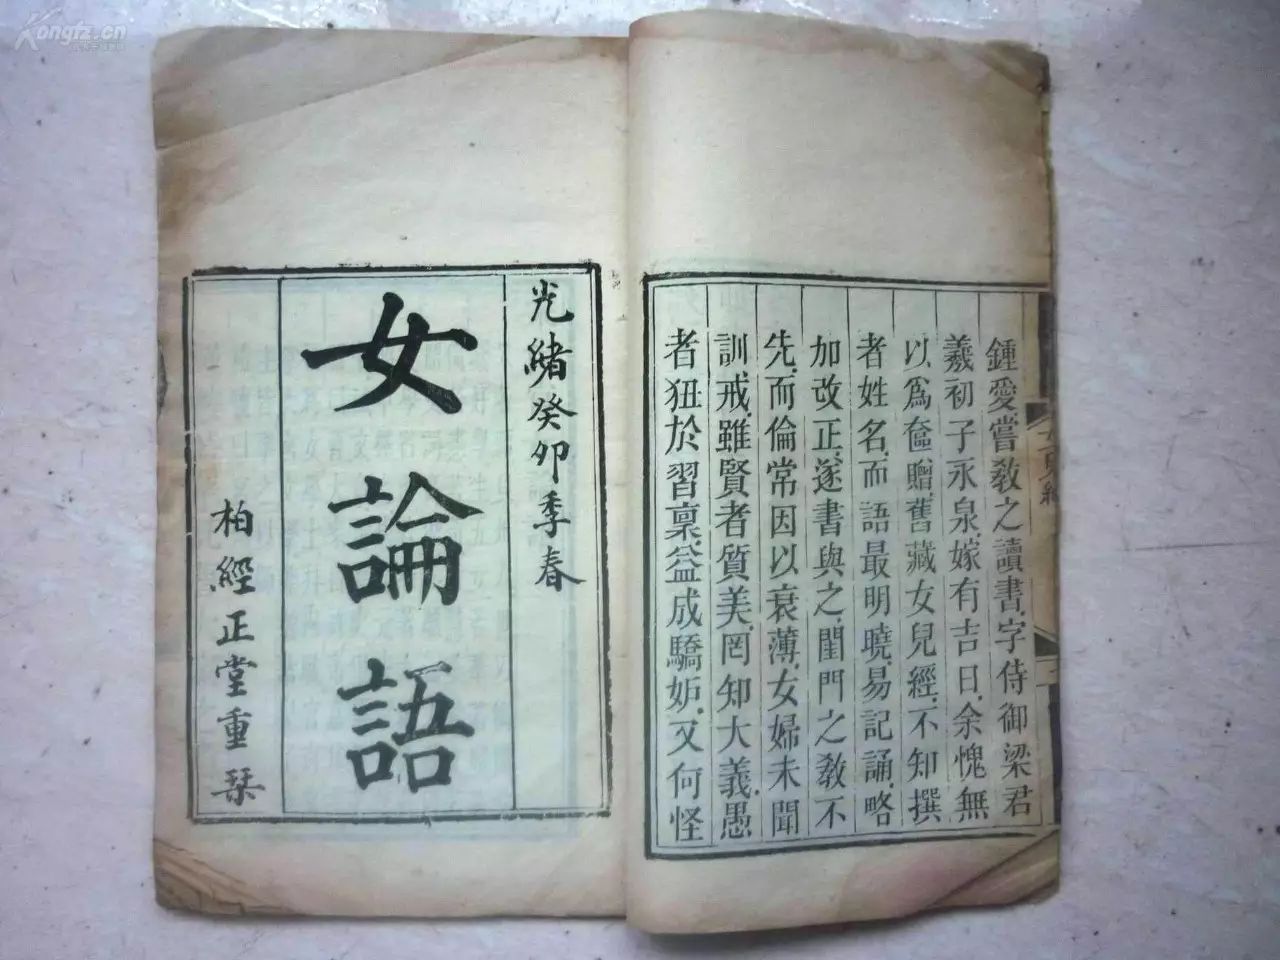 鍾愛嘗敎之讀書字侍御梁君
羲初子永泉嫁有吉日余愧無
以爲奩贈舊藏女兒經不知撰
者姓名而語最明曉易記誦略
加改正遂書與之閨門之敎不
先而倫常因以衰薄女婦未聞
訓戒雖賢者質美罔知大義愚
者狃於習稟益成驕妒又何怪
光緒癸卯季春
女論語
柏經正堂重栞
Kongfz.cn